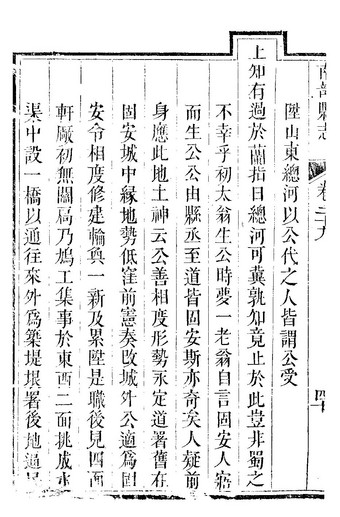 南部縣志 卷二十九 四十
陞山東總河以公代之人皆謂公受
上知有過於蘭指日總河可冀孰知竟止於此豈非蜀之
不幸乎初太翁生公時夢一老翁自言固安人寤
而生公公由縣丞至道皆固安斯亦奇矣人疑前
身應此地土神云公善相度形勢永定道署舊在
固安城中緣地勢低窪前憲奏改城外公適爲固
安令相度修建輪奐一新及累陞是職後見四面
軒厰初無關扃乃鳩工集事於東西二面挑成水
渠中設一橋以通往來外爲築堤堰署後地逼